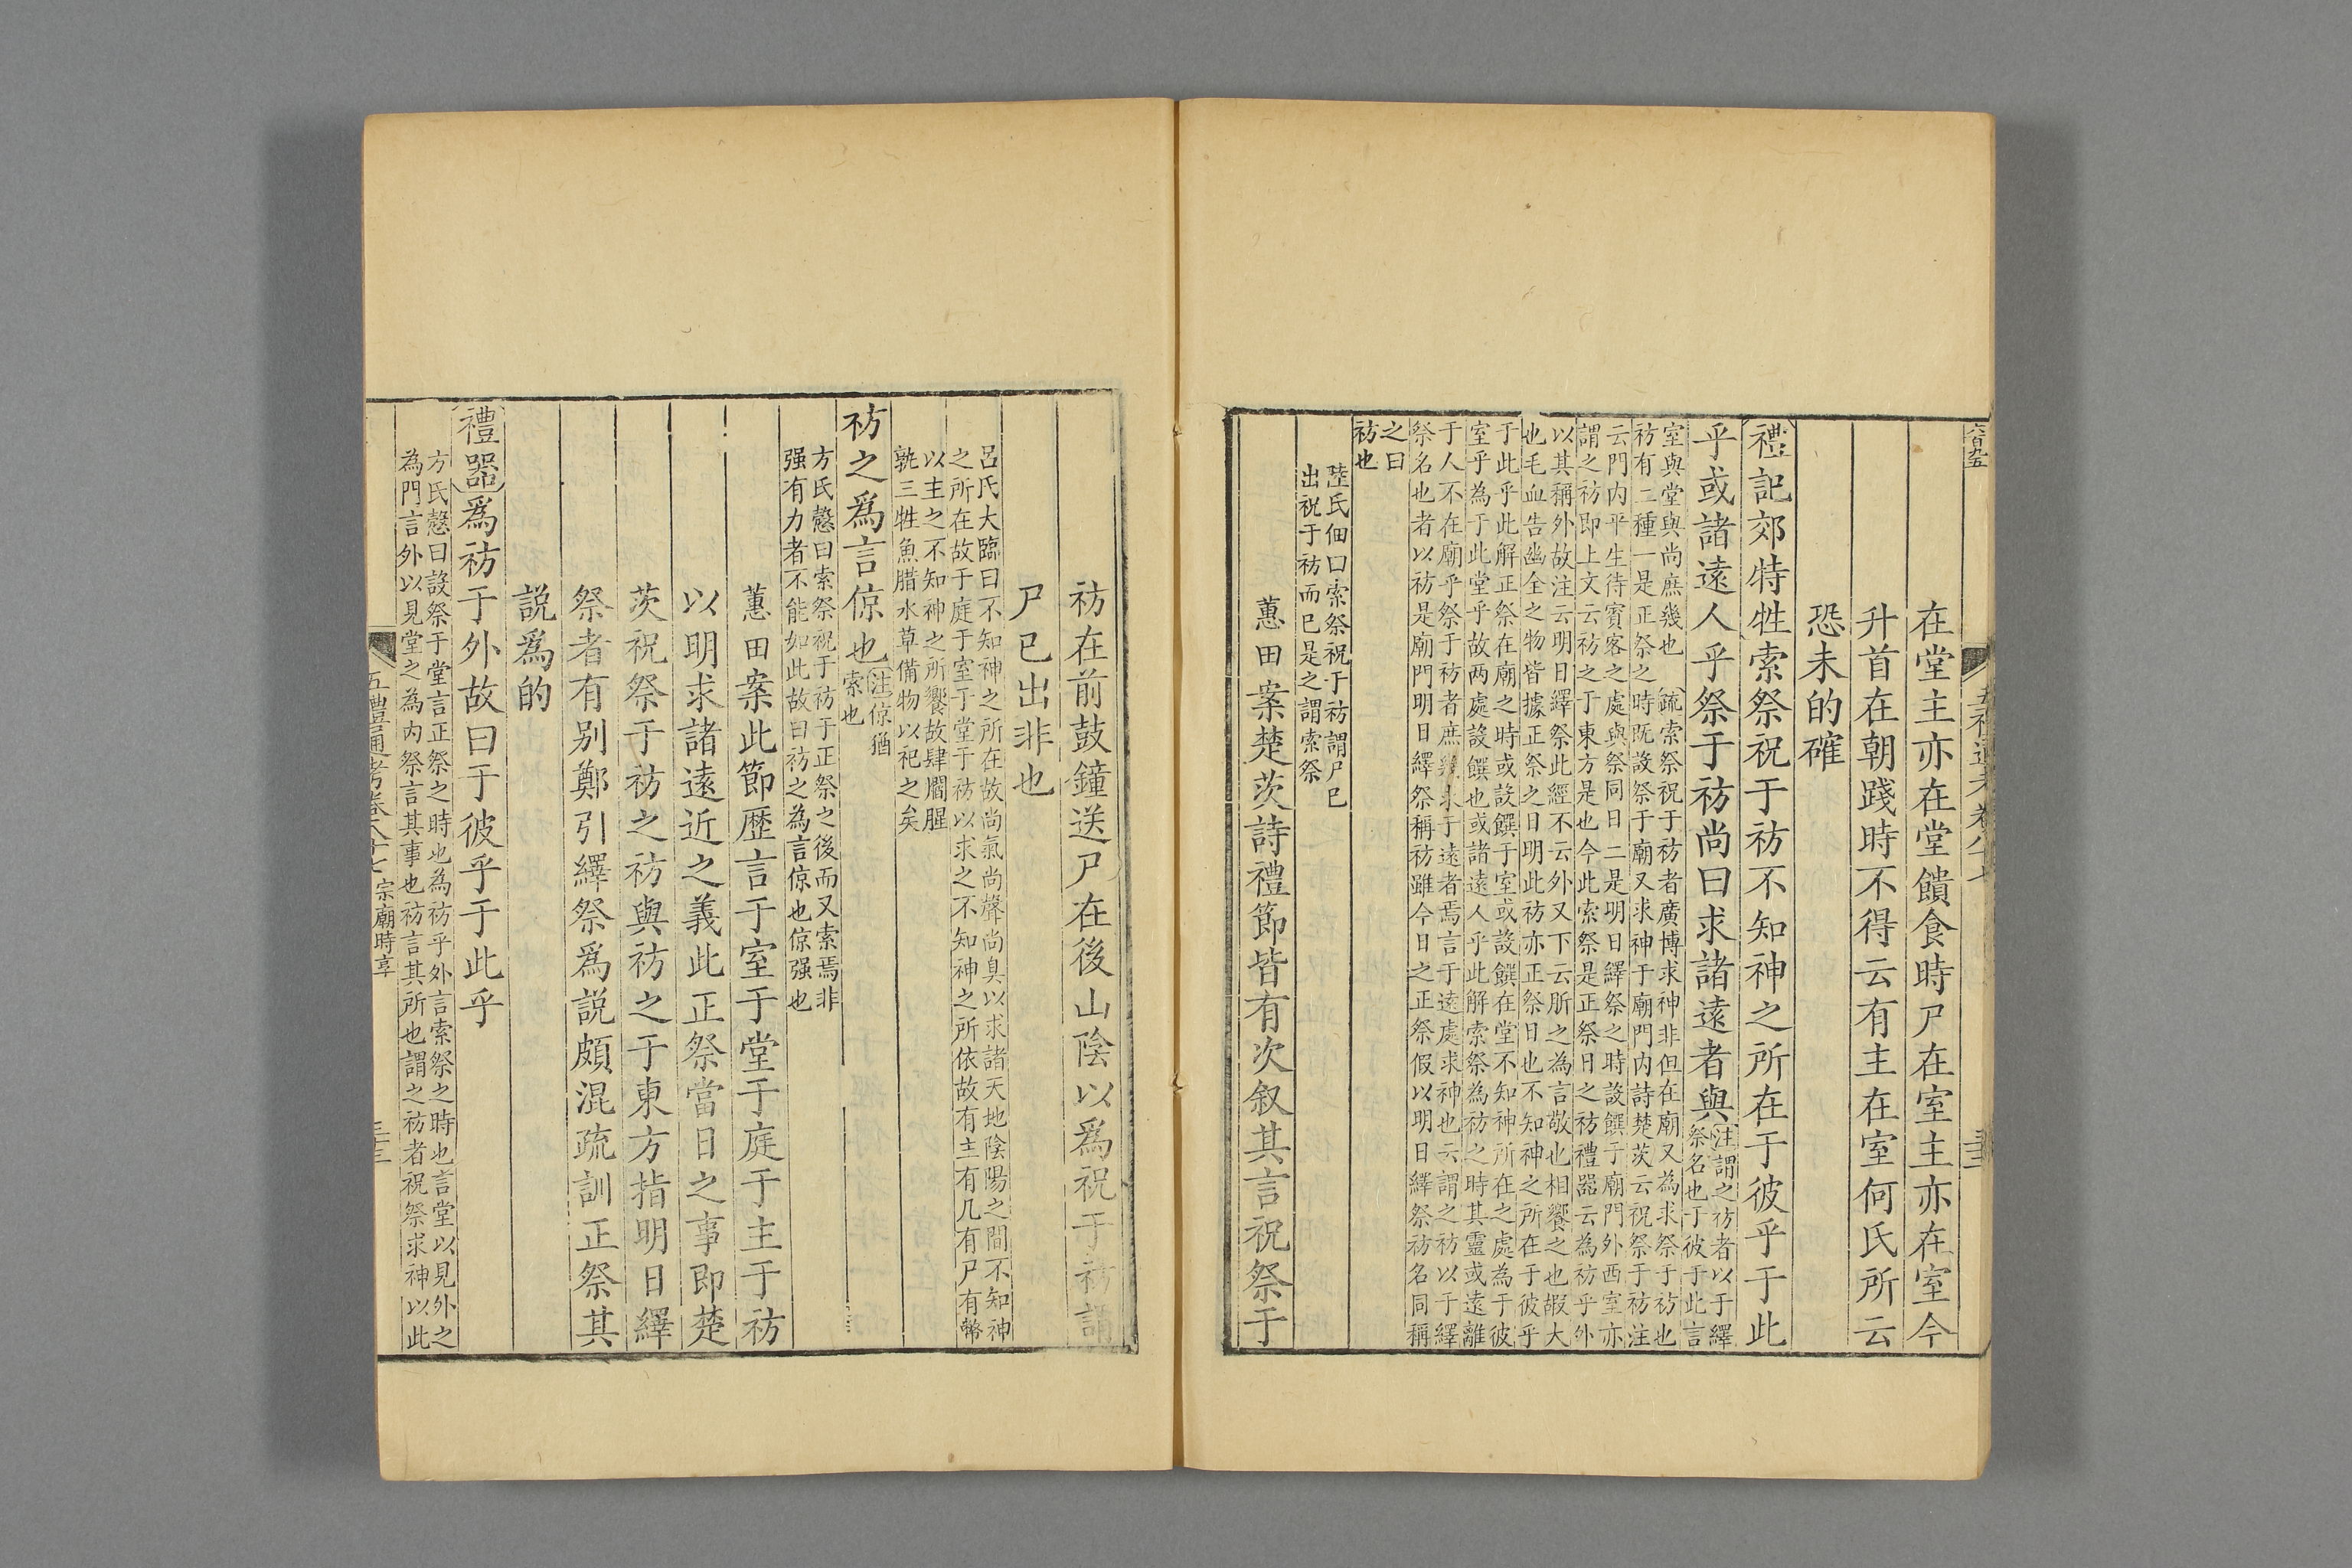 在堂主亦在堂饋食時尸在室主亦在室今
升首在朝踐時不得云有主在室何氏所云
恐未的確
禮記郊特牲索祭祝于祊不知神之所在于彼乎于此
乎或諸遠人乎祭于祊尚曰求諸遠者與
注謂之祊者以于繹
祭名也于彼于此言
室與堂與尚庶幾也　疏索祭祝于祊者廣博求神非但在廟又為求祭于祊也
祊有二種一是正祭之時既設祭于廟又求神于廟門内詩楚茨云祝祭于祊注
云門内平生待賓客之處與祭同日二是明日繹祭之時設饌于廟門外西室亦
謂之祊即上文云祊之于東方是也今此索祭是正祭日之祊禮器云為祊乎外
以其稱外故注云明日繹祭此經不云外又下云肵之為言敬也相饗之也嘏大
也毛血告幽全之物皆據正祭之日明此祊亦正祭日也不知神之所在于彼乎
于此乎此解正祭在廟之時或設饌于室或設饌在堂不知神所在之處為于彼
室乎為于此堂乎故两處設饌也或諸遠人乎此解索祭為祊之時其靈或遠離
于人不在廟乎祭于祊者庶幾求于遠者焉言于遠處求神也云謂之祊以于繹
祭名也者以祊是廟門明日繹祭稱祊雖今日之正祭假以明日繹祭祊名同稱
之曰
祊也
陸氏佃曰索祭祝于祊謂尸已
出祝于祊而已是之謂索祭
蕙田案楚茨詩禮節皆有次叙其言祝祭于
祊在前鼓鐘送尸在後山陰以爲祝于祊謂
尸已出非也
呂氏大臨曰不知神之所在故尚氣尚聲尚臭以求諸天地陰陽之間不知神
之所在故于庭于室于堂于祊以求之不知神之所依故有主有几有尸有幣
以主之不知神之所饗故肆爓腥
孰三牲魚腊水草備物以祀之矣
祊之爲言倞也
注倞猶
索也
方氏慤曰索祭祝于祊于正祭之後而又索焉非
强有力者不能如此故曰祊之為言倞也倞强也
蕙田案此節歷言于室于堂于庭于主于祊
以明求諸遠近之義此正祭當日之事即楚
茨祝祭于祊之祊與祊之于東方指明日繹
祭者有别鄭引繹祭爲説頗混疏訓正祭其
説爲的
禮器爲祊于外故曰于彼乎于此乎
方氏慤曰設祭于堂言正祭之時也為祊乎外言索祭之時也言堂以見外之
為門言外以見堂之為内祭言其事也祊言其所也謂之祊者祝祭求神以此
五禮通考卷八十七　宗廟時享
三十三